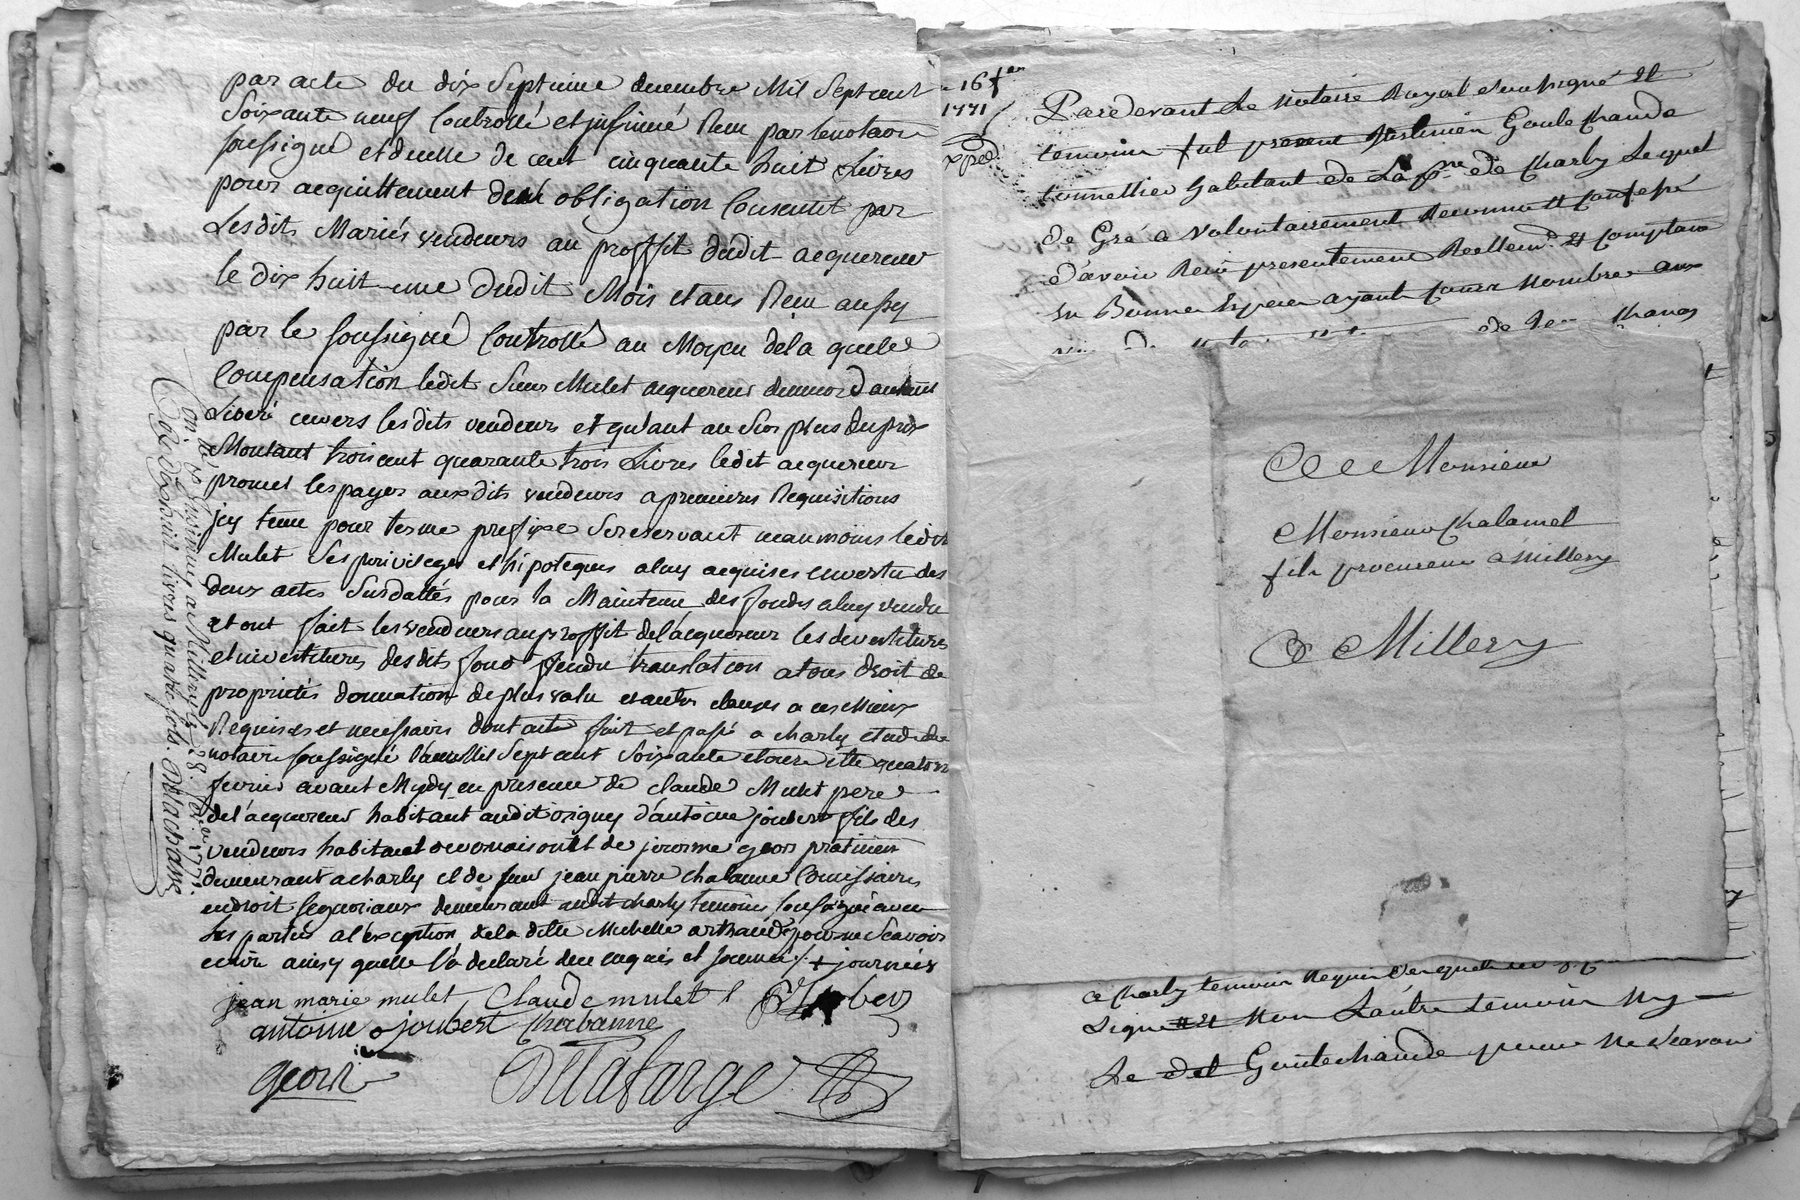 par acte du dix Septieme decembre Mil Sept cent
Soixante neuf Controllé et jnsinué Reçu par le notaire
soussigné et de celle de cent cinquante huit Livres
pour acquittement de obligation Consentit par
Lesdits Mariés vendeurs au proffit dudit acquereur
le dix huit dudit Mois et an Reçu aussy
par le soussigné Controllé au Moyen de la quelle
Compensation ledit Sieur Mulet acquereur demeure d'autant
Liberé envers lesdits vendeurs et quant au Surplus du prix
Montant trois cent quarante trois Livres ledit acquereur
promet les payer auxdits vendeurs a premieres Requisitions
jcy tenu pour terme prefixe se reservant neanmoins ledit
Mulet Ses privileges et hipoteques a luy acquises en vertu des
deux actes Susdattés pour la Maintenue des fonds a luy vendu
et ont fait les vendeurs au proffit de l'acquereur les devestitures
et investitures desdits fond vendu translation a tous droit de
proprietés donnation de plus valu et autres clauses a ces Mieux
Requises et necessaires dont acte fait et passé a charly etude du
notaire soussigné l'an Mil Sept cent Soixante et onze et le quatorze
fevrier avant Mydy en presence de claude Mulet pere
de l'acquereur habitant audit origny d'antoine joubert fils des
vendeurs habitant de jerosme geon praticien
demeurant a charly et de jean pierre chabanne Commissaire
en droit segnoriaux demeurant audit charly temoins soussigné avec
Les parties a l'exception de la dille Michelle arthaud pour ne Scavoir
ecrire ainsy quelle l'a declaré de ce enquis et sommé /. + journées
jean marie mulet Claude mulet
antoine joubert Chabanne
geon Delafarge
Con. et jnsinué a Millery le 28. fev. 1771.
Reçu huit livres quatre sols.
16
1771
exped
Pardevant Le Notaire Royal soussigné et
temoins fut present Goutechaude
tonnellier habitant de La psse de Charly Lequel
de Gré a volontairement Reconnu et Confessé
d'avoir Reçu presentement Reellemt et Comptant
En Bonnes Especes ayant Cours Nombre
de Jean
A Monsieur
Monsieur Chalamel
fils procureur a Millery
A Millery
a Charly temoin Requis Lequel
Signé et Non L'autre temoin Ny
Le dit Goutechaude pour Ne Scavoir